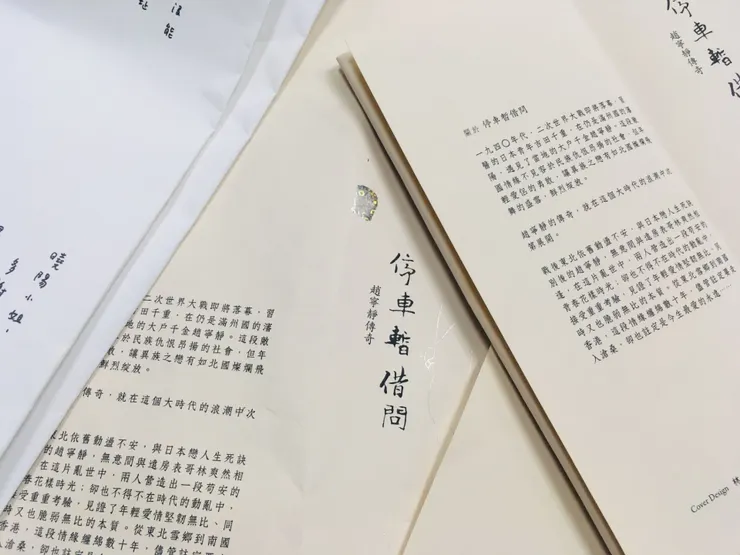 沒能
曉陽小姐,
多謝
二次世界大戰即將落幕,習
田千重,在仍是滿州國的瀋
地的大戶千金趙寧靜。這段敵
於民族仇恨昂揚的社會,但年
敢,讓異族之戀有如北國燦爛飛
鮮烈綻放。
傳奇,就在這個大時代的浪潮中次
東北依舊動盪不安,與日本戀人生死訣
的趙寧靜,無意間與遠房表哥林爽然相
在這片亂世中,兩人營造出一段苟安的
春花樣時光;卻也不得不在時代的動亂中,
接受重重考驗,見證了年輕愛情堅韌無比、同
時又也脆弱無比的本質。從東北雪鄉到南國
香港,這段情緣纏綿數十年,儘管註定要走
入滄桑,卻也註定是今生
停車暫借問
趙寧靜傳奇
關於 停車暫借問
一九四〇年代,二次世界大戰即將落幕,習
醫的日本青年吉田千重,在仍是滿州國的瀋
陽,遇見了當地的大戶千金趙寧靜。這段敵
國情緣不見容於民族仇恨昂揚的社會,但年
輕愛侶的勇敢,讓異族之戀有如北國燦爛飛
舞的盛雪,鮮烈綻放。
趙寧靜的傳奇,就在這個大時代的浪潮中次
第展開。
戰後東北依舊動盪不安,與日本戀人生死訣
別後的趙寧靜,無意間與遠房表哥林爽然相
遇,在這片亂世中,兩人營造出一段苟安的
青春花樣時光;卻也不得不在時代的動亂中,
接受重重考驗,見證了年輕愛情堅韌無比、同
時又也脆弱無比的本質。從東北雪鄉到南國
香港,這段情緣纏綿數十年,儘管註定要走
入滄桑,卻也註定是今生最愛的永遠……
Cover Design
停車暫借
趙寧靜傳奇